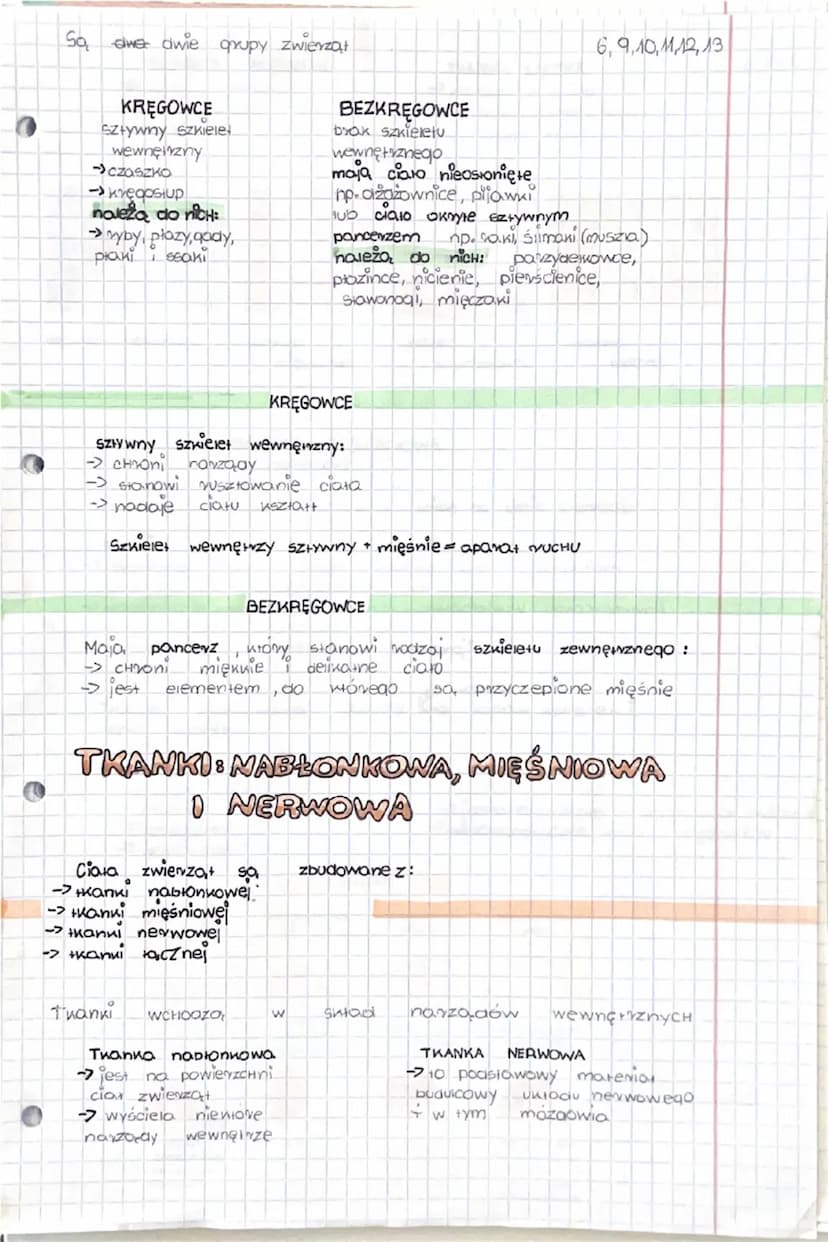 Są dwie grupy zwierząt
6, 9, 10, 11, 12, 13
KRĘGOWCE
sztywny szkielet
wewnętrzny
→ czaszka
→ kręgosłup
należą do nich:
→ ryby, płazy, gady,
ptaki i ssaki
BEZKRĘGOWCE
brak szkieletu
wewnętrznego
mają ciało nieosłonięte
np. dżdżownice, pijawki
lub ciało okryte sztywnym
pancerzem np. raki, ślimaki (muszla)
należą do nich: parzydełkowce,
płazińce, nicienie, pierścienice,
stawonogi, mięczaki
KRĘGOWCE
sztywny szkielet wewnętrzny:
-> chroni narządy
-> stanowi rusztowanie ciała
-> nadaje ciału kształt
Szkielet wewnętrzy sztywny + mięśnie = aparat RUCHU
BEZKRĘGOWCE
Mają pancerz, który stanowi rodzaj szkieletu zewnętrznego:
-> chroni miękkie i delikatne ciało
-> jest elementem, do którego są przyczepione mięśnie
TKANKI: NABŁONKOWA, MIĘŚNIOWA
I NERWOWA
Ciała zwierząt są zbudowane z:
-> tkanki nabłonkowej
-> tkanki mięśniowej
-> tkanki nerwowej
-> tkanki łącznej
Tkanki wchodzą w skład narządów wewnętrznych
Tkanka nabłonkowa
-> jest na powierzchni
ciał zwierząt
-> wyściela niektóre
narządy wewnętrze
TKANKA NERWOWA
-> to podstawowy materiał
budulcowy układu nerwowego
+ w tym mózgowia